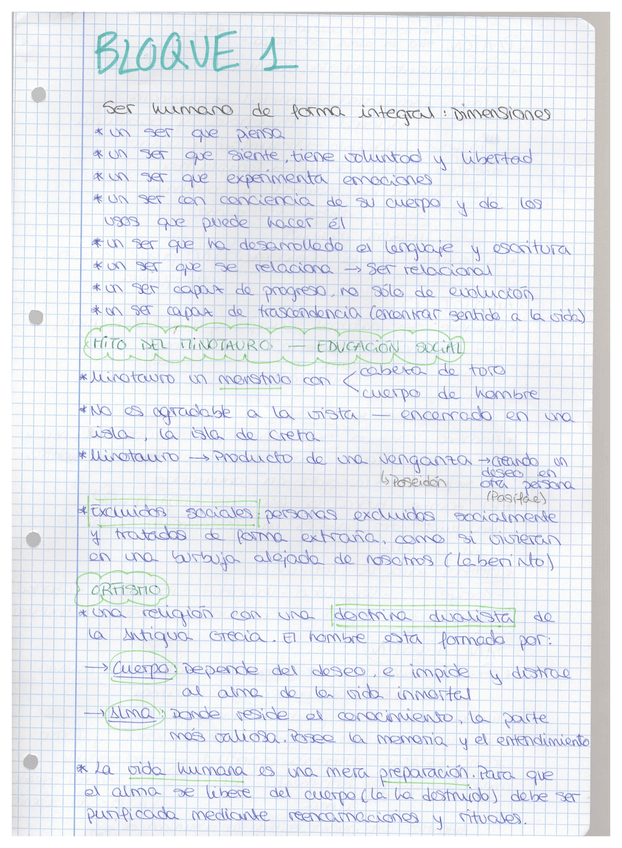 BLOQUE 1
Ser humano de forma integral: Dimensiones
* un ser que piensa
* un ser que siente, tiene voluntad y libertad
* un ser que experimenta emociones
* un ser con conciencia de su cuerpo y de los
usos que puede hacer él
* un ser que ha desarrollado el lenguaje y escritura
* un ser que se relaciona → Ser relacional
* un ser capaz de progreso, no sólo de evolución
* un ser capaz de trascendencia (encontrar sentido a la vida)
MITO DEL MINOTAURO — EDUCACIÓN SOCIAL
* Minotauro un monstruo con < cabeza de toro
cuerpo de hombre
* No es agradable a la vista — encerrado en una
isla, la isla de Creta
* Minotauro → Producto de una venganza → creando un
deseo en
↳ Poseidón otra persona
(Pasifae)
* Excluidos sociales: personas excluidos socialmente
y tratados de forma extraña, como si vivieran
en una burbuja alejada de nosotros (Laberinto)
ORFISMO
* una religión con una doctrina dualista de
la Antigua Grecia. El hombre esta formado por:
→ Cuerpo: Depende del deseo, e impide y distrae
al alma de la vida inmortal
→ Alma: Donde reside el conocimiento, la parte
más valiosa. Posee la memoria y el entendimiento
* La vida humana es una mera preparación. Para que
el alma se libere del cuerpo (la ha destruido) debe ser
purificada mediante reencarnaciones y rituales.